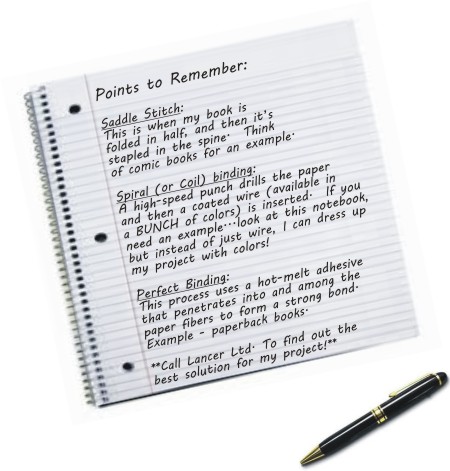 Points to Remember:
Saddle Stitch:
This is when my book is
folded in half, and then it's
stapled in the spine. Think
of comic books for an example.
Spiral (or Coil) binding:
A high-speed punch drills the paper
and then a coated wire (available in
a BUNCH of colors) is inserted. If you
need an example...look at this notebook,
but instead of just wire, I can dress up
my project with colors!
Perfect Binding:
This process uses a hot-melt adhesive
that penetrates into and among the
paper fibers to form a strong bond.
Example - paperback books.
**Call Lancer Ltd. To find out the
best solution for my project!**